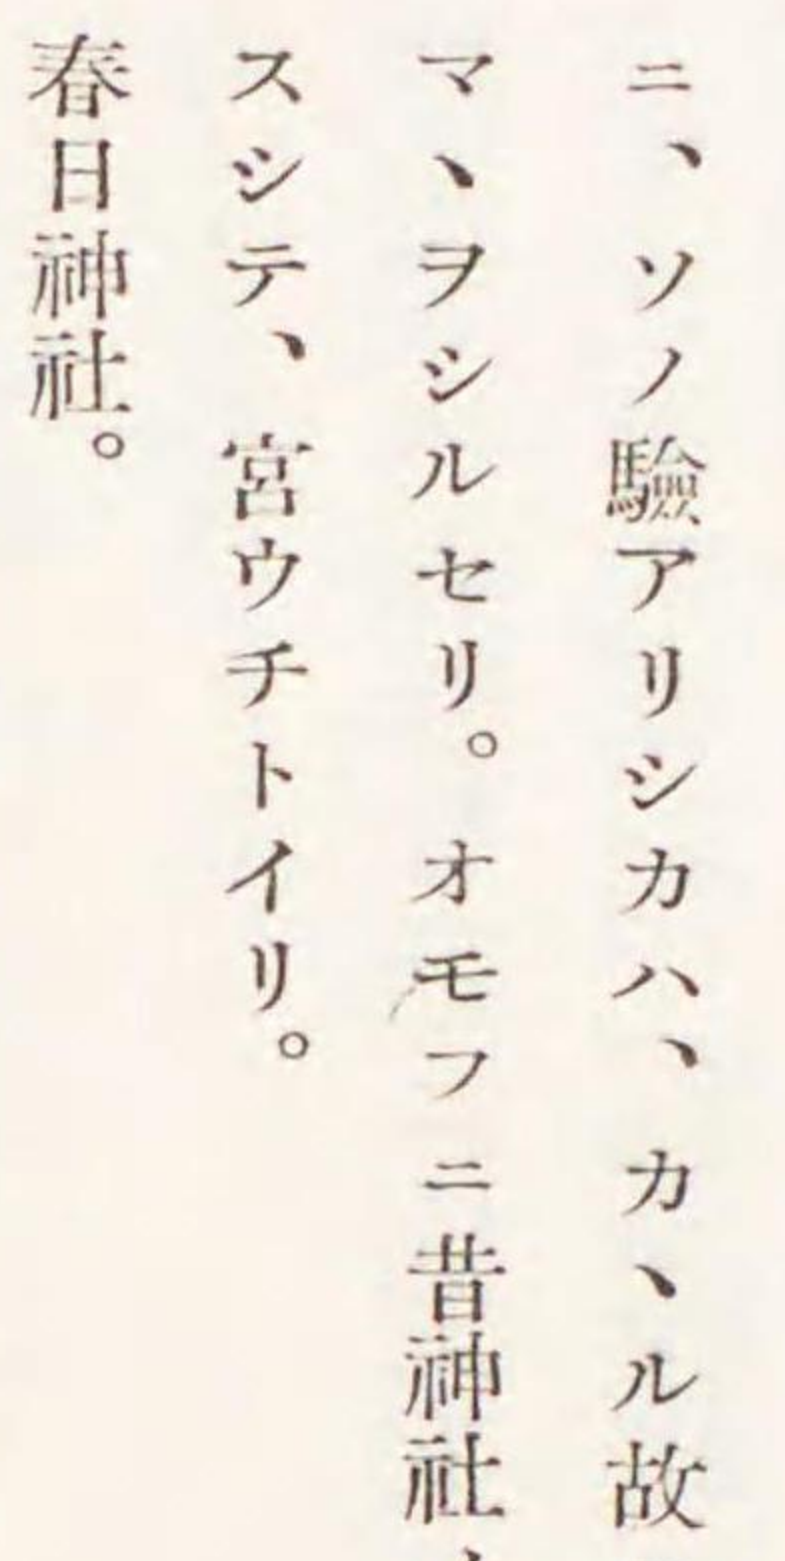 ニ、ソノ驗アリシカハ、カヽル故
マヽヲシルセリ。オモフニ昔神社
スシテ、宮ウチトイリ。
春日神社。